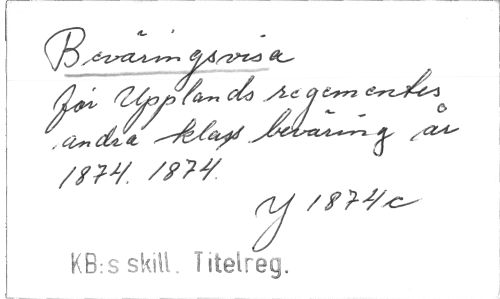 Beväringsvisa
för Upplands regementes
andra klass beväring år
1874. 1874.
Y 1874c
KB:s skill. Titelreg.